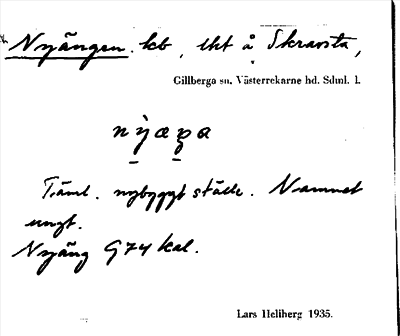 Nyängen. lht å Skravsta,
Gillberga sn. Västerrekarne hd. Sdml. l.
Täml. nybyggt ställe. Namnet
ungt.
Nyäng G74 kal.
Lars Hellberg 1935.